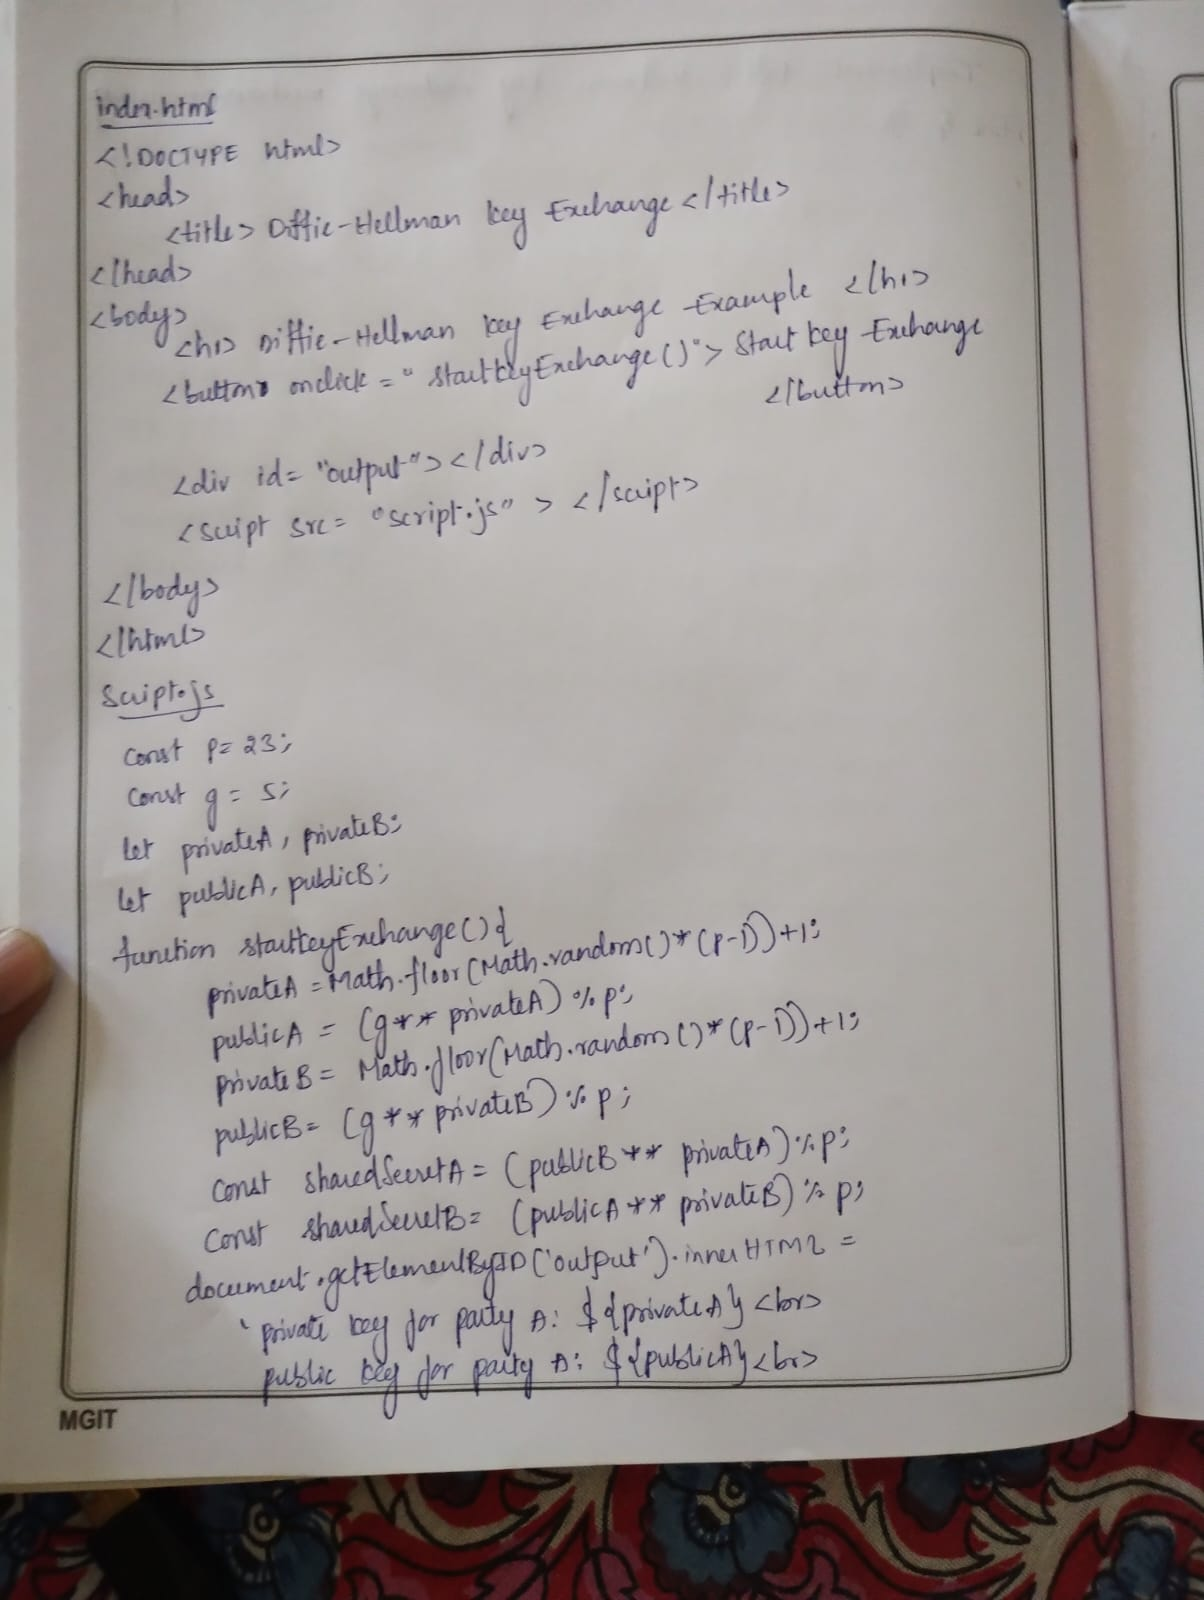 index.html
<!DOCTYPE html>
<head>
<title> Diffie-Hellman key Exchange </title>
</head>
<body>
<h1> Diffie-Hellman key Exchange Example </h1>
<button onclick = "startkeyExchange()"> Start key Exchange
</button>
<div id= "output"></div>
<script src= "script.js" > </script>
</body>
</html>
Script.js
const p= 23;
const g = 5;
let privateA, privateB;
let publicA, publicB;
function startkeyExchange() {
privateA = Math.floor(Math.random()*(p-1))+1;
publicA = (g** privateA) % p;
privateB = Math.floor(Math.random()*(p-1))+1;
publicB= (g** privateB) % p;
const sharedSecretA = (publicB** privateA)%p;
const sharedSecretB= (publicA** privateB) % p;
document.getElementByID('output').innerHTML =
`private key for party A: ${privateA} <br>
public key for party A: ${publicA}<br>
MGIT